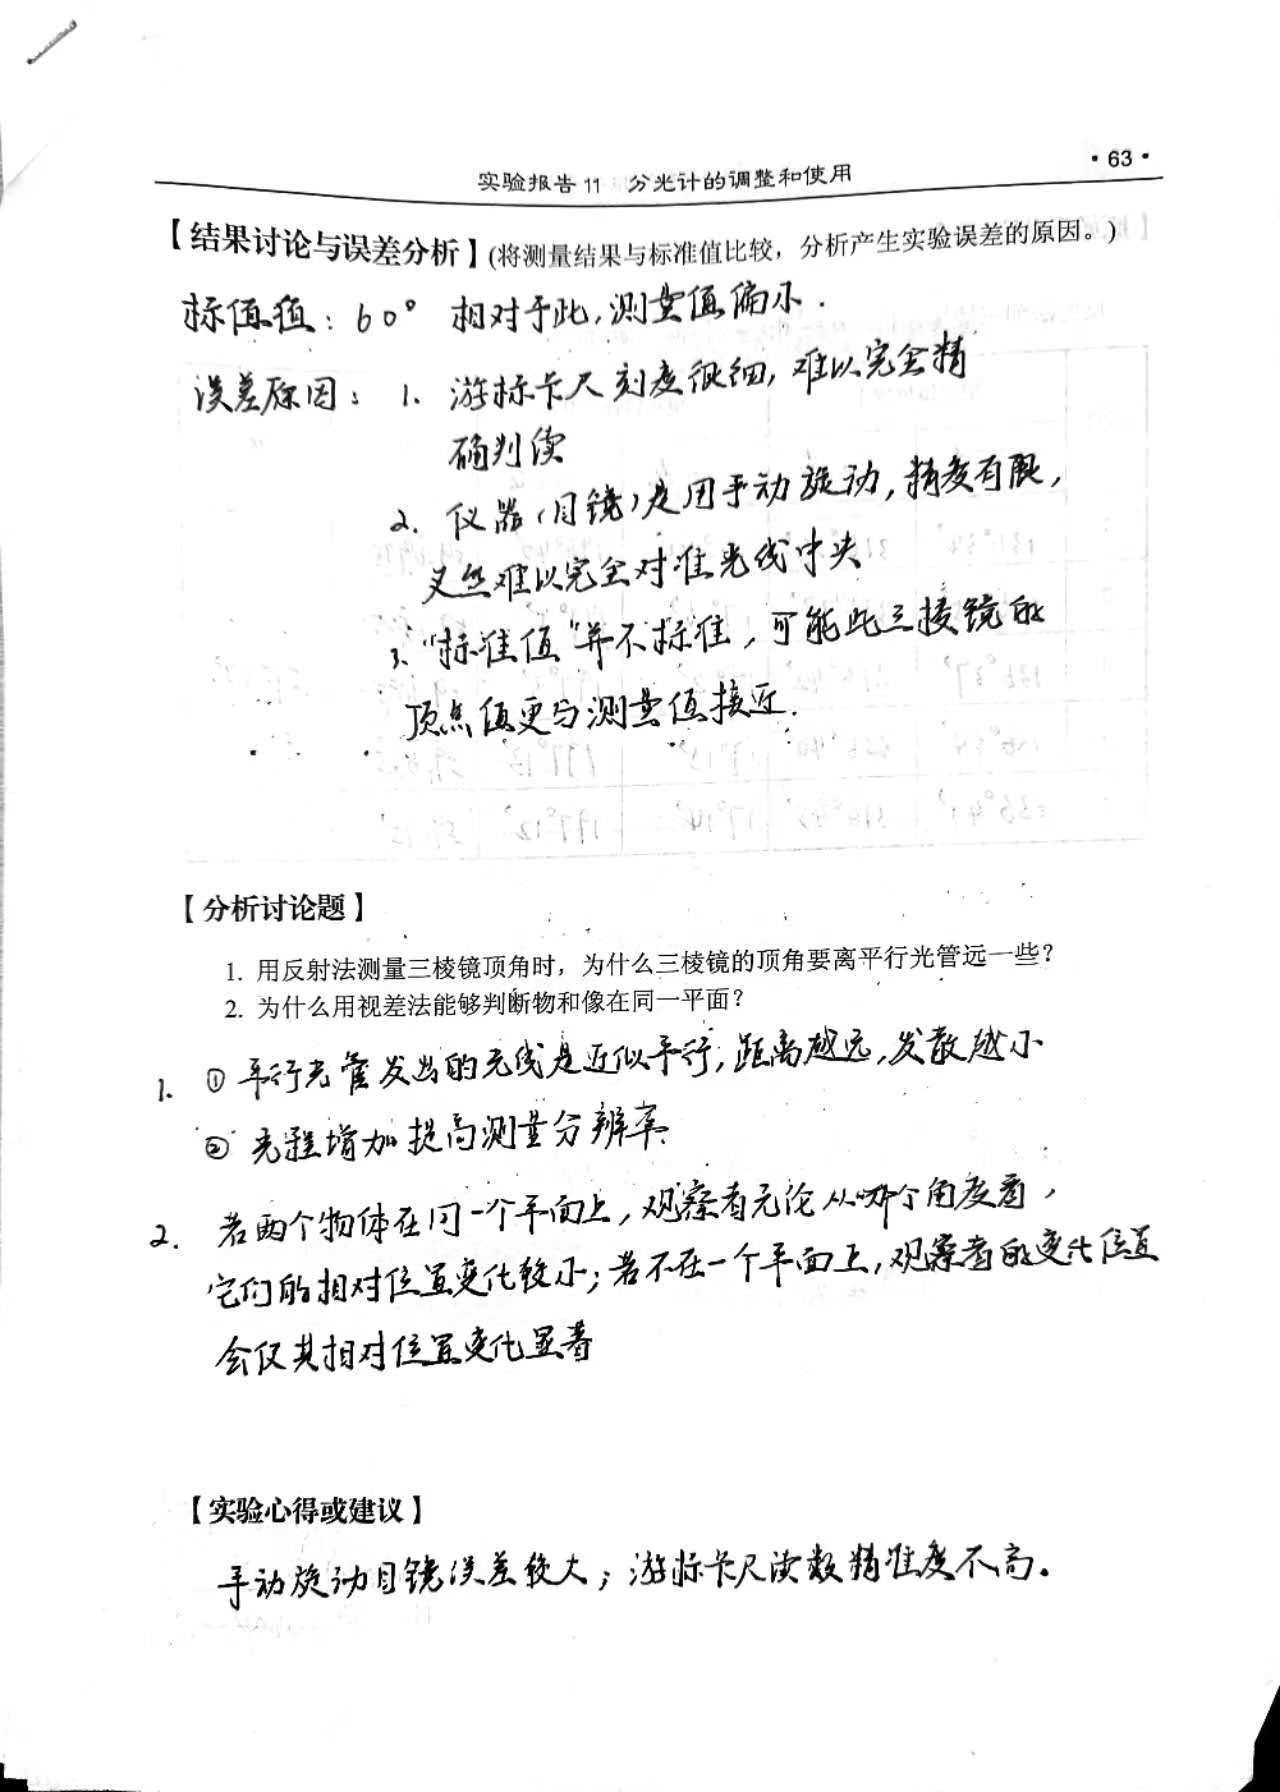 实验报告11 分光计的调整和使用
·63·
【结果讨论与误差分析】(将测量结果与标准值比较，分析产生实验误差的原因。)
标值值：60° 相对于此,测量值偏小.
误差原因：1. 游标卡尺刻度很细, 难以完全精
确判读
2. 仪器(目镜)是用手动旋动, 精度有限,
必然难以完全对准光线中央
3. “标准值”并不标准, 可能此三棱镜的
顶点值更与测量值接近.
【分析讨论题】
1. 用反射法测量三棱镜顶角时，为什么三棱镜的顶角要离平行光管远一些？
2. 为什么用视差法能够判断物和像在同一平面？
1. ① 平行光管发出的光线是近似平行, 距离越远, 发散越小
② 光程增加提高测量分辨率.
2. 若两个物体在同一个平面上, 观察者无论从哪个角度看,
它们的相对位置变化较小; 若不在一个平面上, 观察者的变化位置
会仅其相对位置变化显著
【实验心得或建议】
手动旋动目镜误差较大; 游标卡尺读数精准度不高。